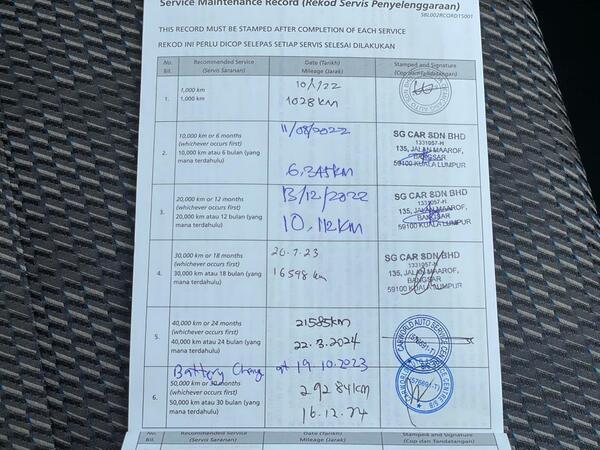 Service Maintenance Record (Rekod Servis Penyelenggaraan)
SBL002RCORD15001
THIS RECORD MUST BE STAMPED AFTER COMPLETION OF EACH SERVICE
REKOD INI PERLU DICOP SELEPAS SETIAP SERVIS SELESAI DILAKUKAN
No. Recommended Service Date (Tarikh) Stamped and Signature
Bil. (Servis Saranan) Mileage (Jarak) (Cop dan Tandatangan)
1.
1,000 km
1,000 km
10/1/22
1028 km
2.
10,000 km or 6 months
(whichever occurs first)
10,000 km atau 6 bulan (yang
mana terdahulu)
11/08/2022
6,345km
SG CAR SDN BHD
1331057-H
135, JALAN MAAROF,
BANGSAR
59100 KUALA LUMPUR
3.
20,000 km or 12 months
(whichever occurs first)
20,000 km atau 12 bulan (yang
mana terdahulu)
13/12/2022
10,112KM
SG CAR SDN BHD
1331057-H
135, JALAN MAAROF,
BANGSAR
59100 KUALA LUMPUR
4.
30,000 km or 18 months
(whichever occurs first)
30,000 km atau 18 bulan (yang
mana terdahulu)
20.7.23
16598 km
SG CAR SDN BHD
1331057-H
135, JALAN MAAROF,
BANGSAR
59100 KUALA LUMPUR
5.
40,000 km or 24 months
(whichever occurs first)
40,000 km atau 24 bulan (yang
mana terdahulu)
21585km
22.3.2024
CARWORLD AUTO SERVICE
Battery Change at 19.10.2023
6.
50,000 km or 30 months
(whichever occurs first)
50,000 km atau 30 bulan (yang
mana terdahulu)
29284km
16.12.24
No. Recommended Service Date (Tarikh) Stamped and Signature
Bil. (Servis Saranan) Mileage (Jarak) (Cop dan Tandatangan)